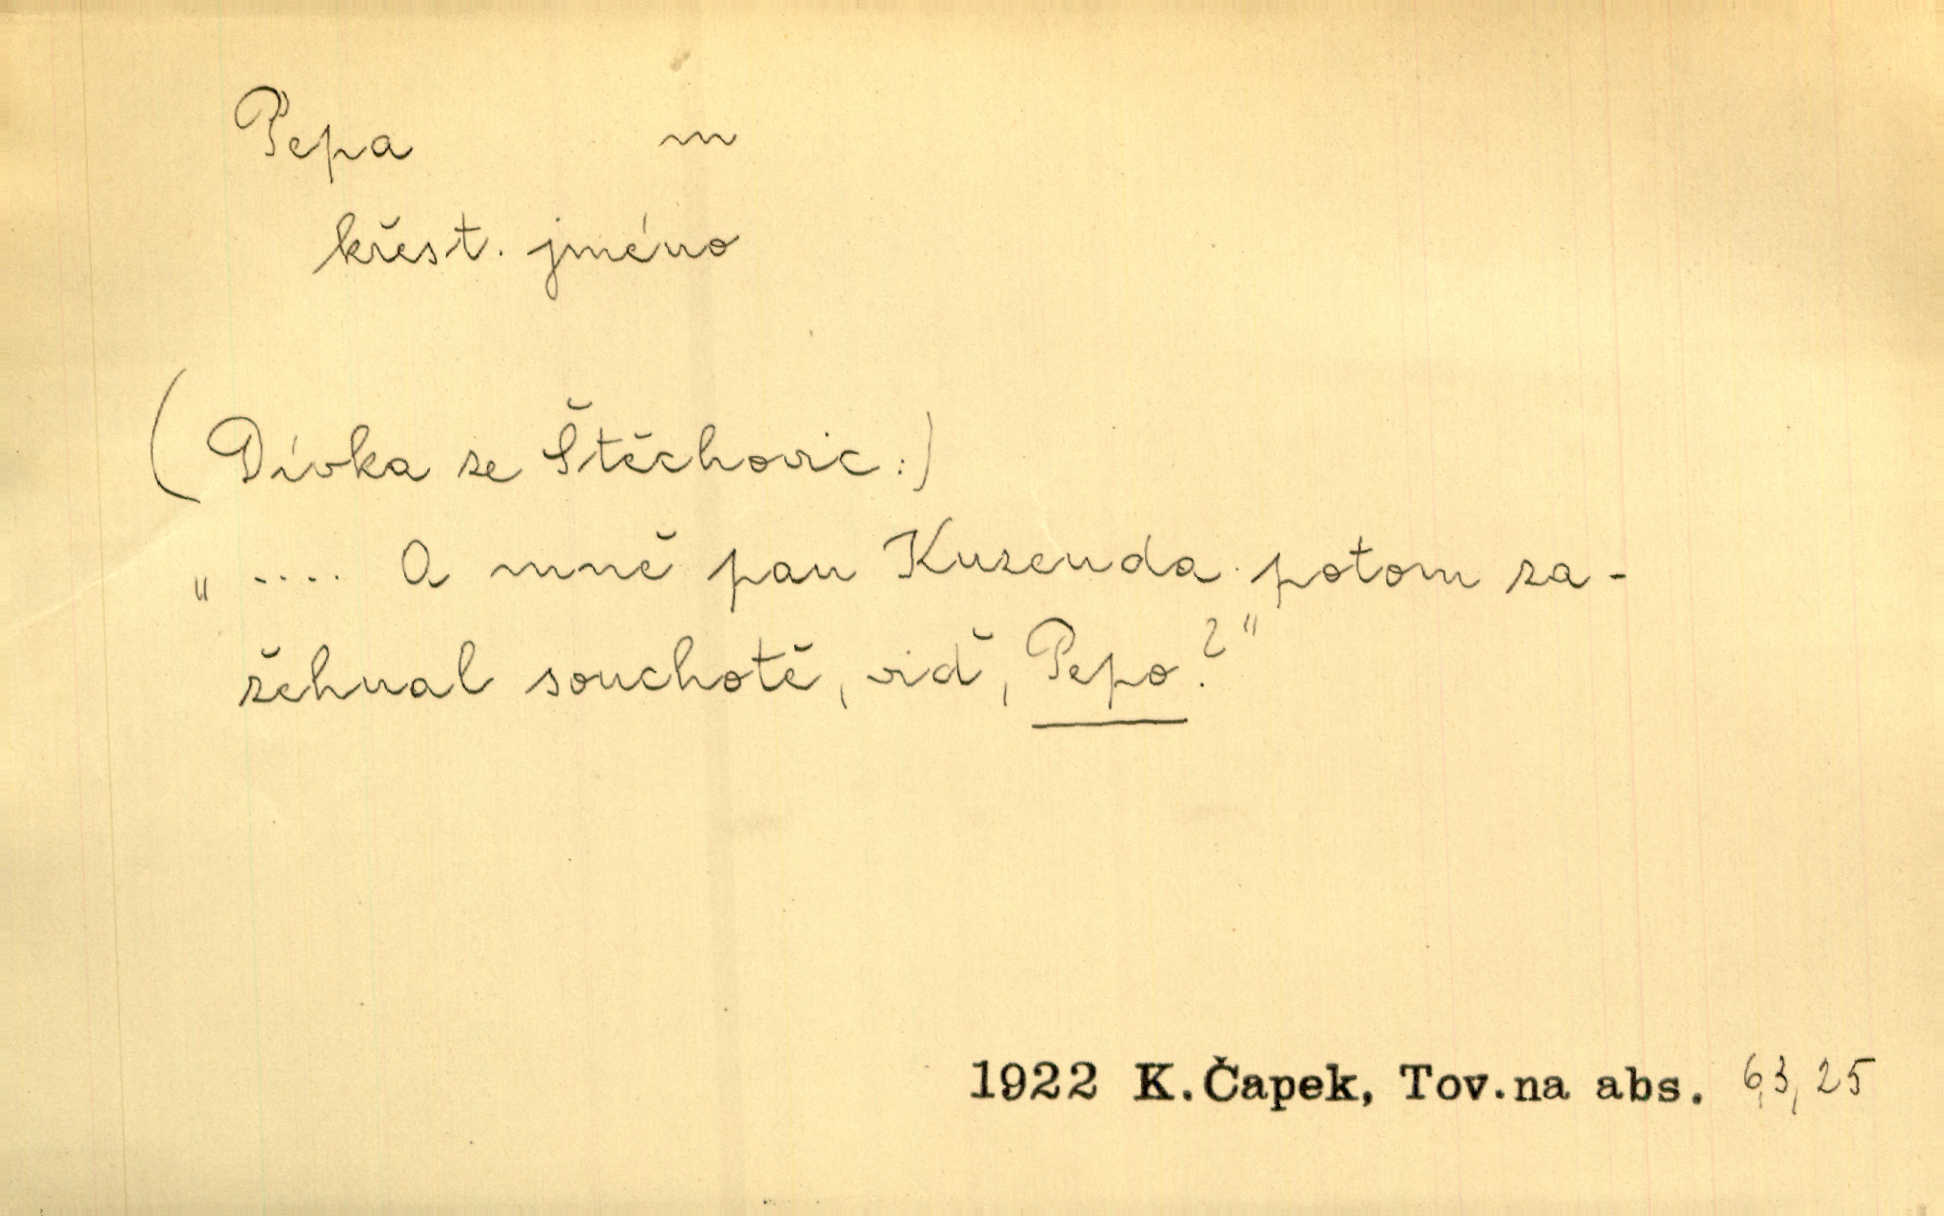 Pepa m
křest. jméno
(Dívka ze Štěchovic:)
„.... A mně pan Kuzenda potom za-
žehnal souchotě, viď, Pepo?"
1922 K.Čapek, Tov.na abs. 63, 25